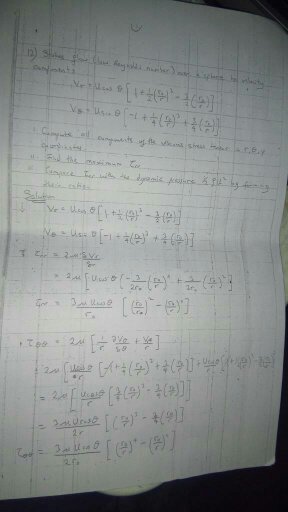 12) Stokes flow (low Reynolds number) over a sphere to velocity
components
Vr = Ucosθ [1 + 1/2 (r0/r)^3 - 3/2 (r0/r)]
Vθ = Usinθ [-1 + 1/4 (r0/r)^3 + 3/4 (r0/r)]
i Compute all components of the viscous stress tensor in r, θ,
coordinates
ii Find the maximum τrr
iii Compare τrr with the dynamic pressure is 1/2 ρU^2 by forming
their ratio
Solution
Vr = Ucosθ [1 + 1/2 (r0/r)^3 - 3/2 (r0/r)]
Vθ = Usinθ [-1 + 1/4 (r0/r)^3 + 3/4 (r0/r)]
τrr = 2μ ∂Vr/∂r
= 2μ [Ucosθ (-3/2r0 (r0/r)^4 + 3/2r0 (r0/r)^2)]
τrr = 3μUcosθ/r0 [(r0/r)^2 - (r0/r)^4]
τθθ = 2μ [1/r ∂Vθ/∂θ + Vr/r]
= 2μ [Ucosθ/r [-1 + 1/4 (r0/r)^3 + 3/4 (r0/r)] + Ucosθ/r
= 2μ [Ucosθ/r [3/4 (r0/r)^3 - 3/4 (r0/r)]]
= 3μUcosθ/2r [(r0/r)^3 - (r0/r)]
τθθ = 3μUcosθ/2r0 [(r0/r)^4 - (r0/r)^2]